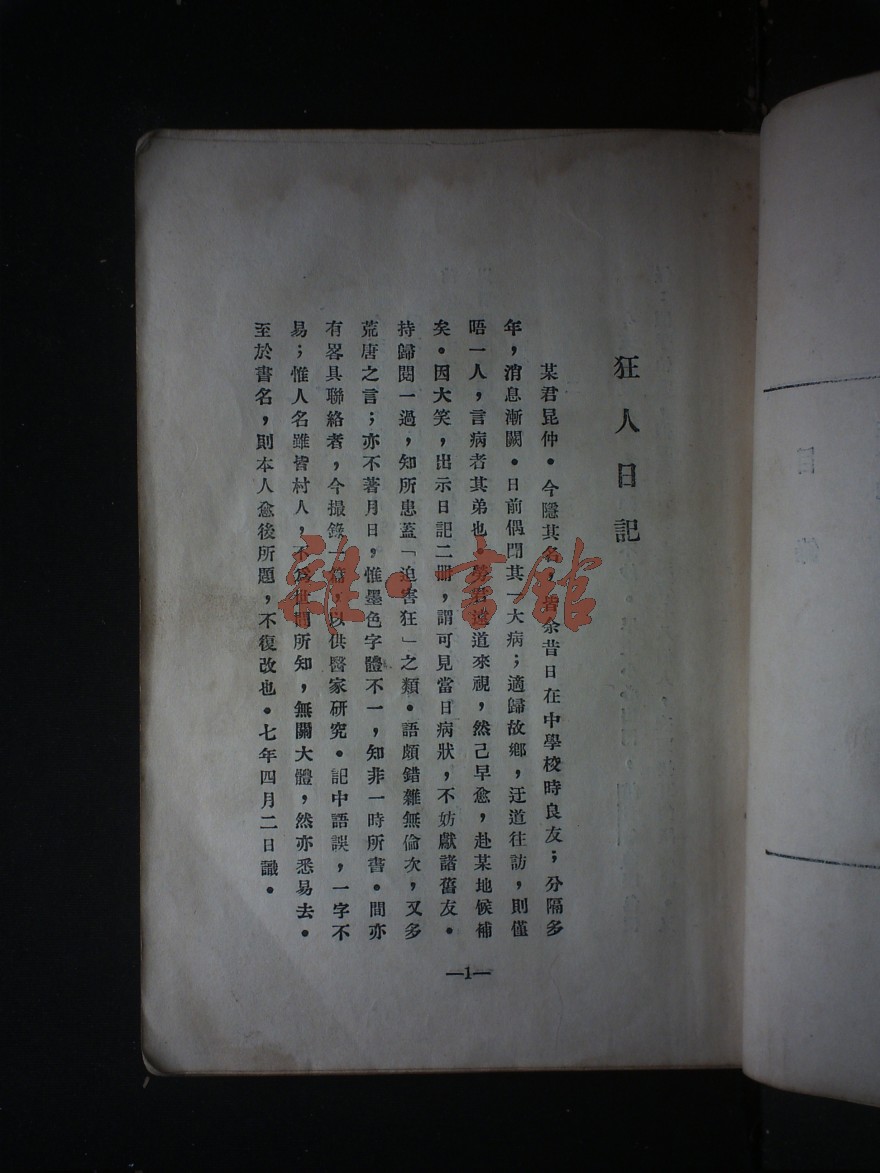 狂人日記
某君昆仲。今隱其名，皆余昔日在中學校時良友；分隔多
年，消息漸闕。日前偶聞其一大病；適歸故鄉，迂道往訪，則僅
晤一人，言病者其弟也。勞君遠道來視，然已早愈，赴某地候補
矣。因大笑，出示日記二冊，謂可見當日病狀，不妨獻諸舊友。
持歸閱一過，知所患蓋「迫害狂」之類。語頗錯雜無倫次，又多
荒唐之言；亦不著月日，惟墨色字體不一，知非一時所書。間亦
有畧具聯絡者，今撮錄一篇，以供醫家研究。記中語誤，一字不
易；惟人名雖皆村人，不爲世間所知，無關大體，然亦悉易去。
至於書名，則本人愈後所題，不復改也。七年四月二日識。
—1—
雜·書館